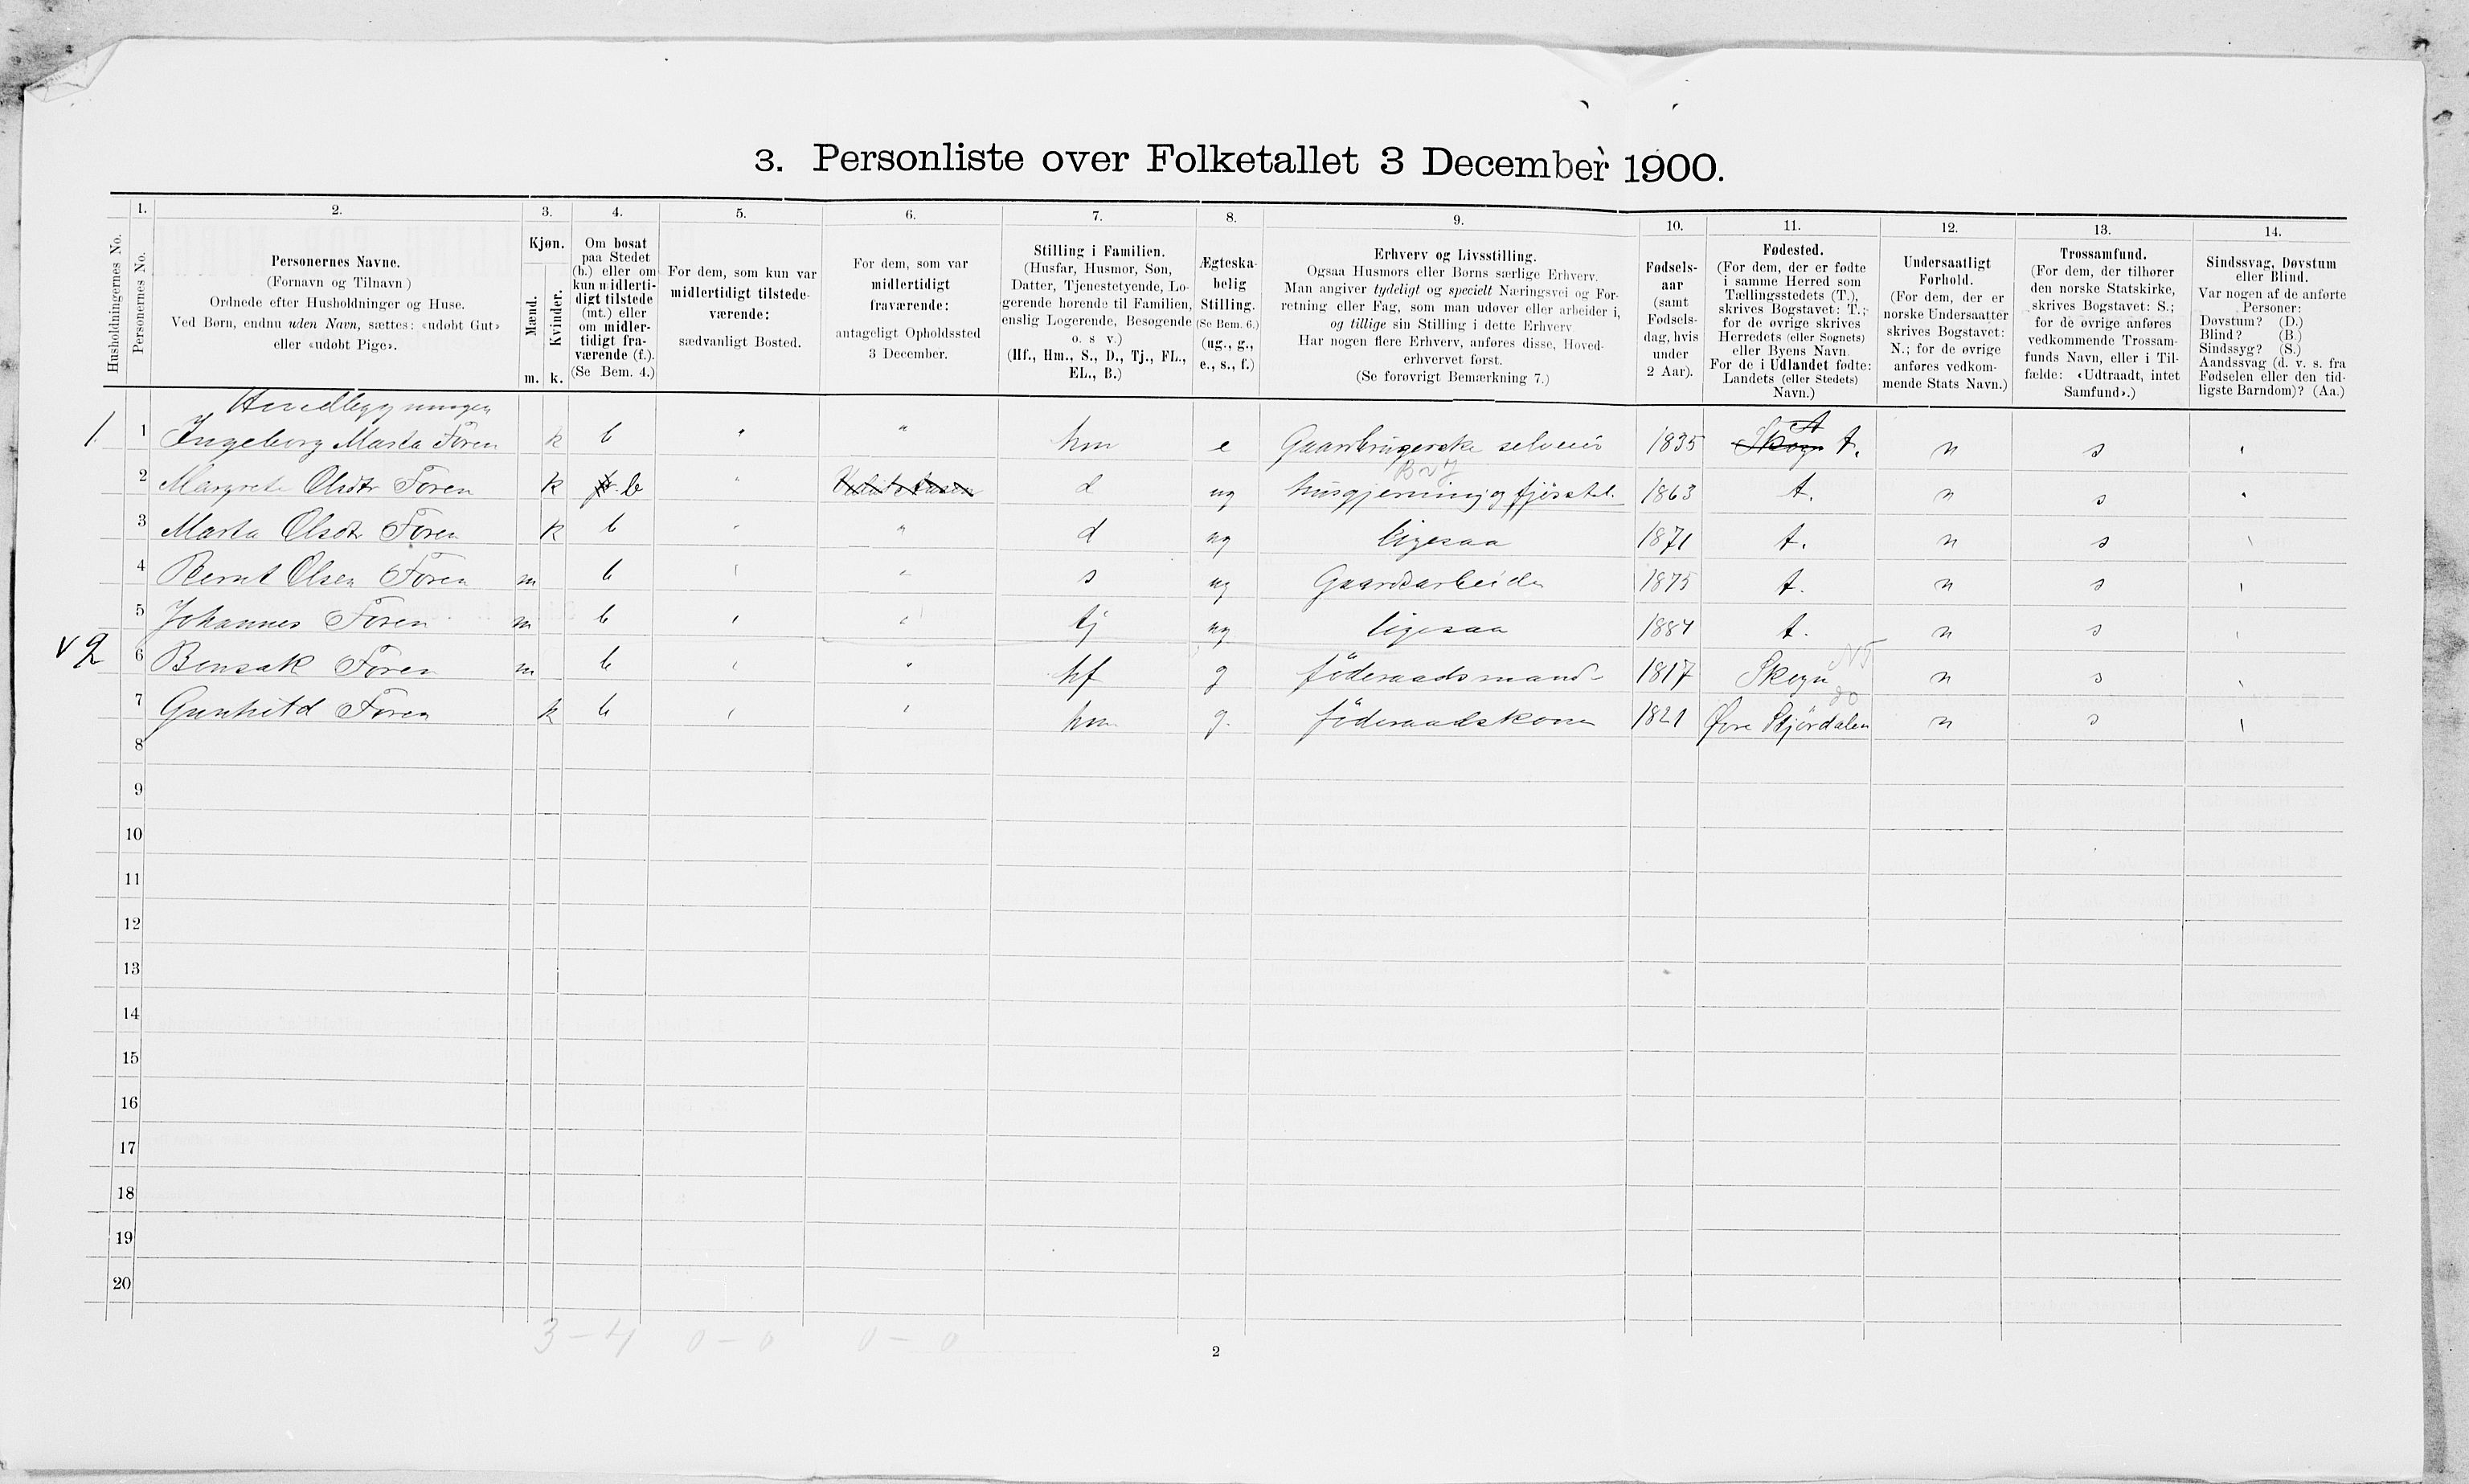 3. Personliste over Folketallet 3 December 1900.
Husholdningernes No.
1. Personernes No.
2. Personernes Navne.
(Fornavn og Tilnavn)
Ordnede efter Husholdninger og Huse.
Ved Børn, endnu uden Navn, sættes: «udøbt Gut»
eller «udøbt Pige».
3. Kjøn.
Mænd. Kvinder.
m. k.
4. Om bosat
paa Stedet
(b.) eller om
kun midlerti-
digt tilstede
(mt.) eller
om midler-
tidigt fra-
værende (f.).
(Se Bem. 4.)
5. For dem, som kun var
midlertidigt tilstede-
værende:
sædvanligt Bosted.
6. For dem, som var
midlertidigt
fraværende:
antageligt Opholdssted
3 December.
7. Stilling i Familien.
(Husfar, Husmor, Søn,
Datter, Tjenestetyende, Lo-
gerende hørende til Familien,
enslig Logerende, Besøgende
o. s v.)
(Hf., Hm., S., D., Tj., FL.,
EL., B.)
8. Ægteska-
belig
Stilling.
(Se Bem. 6.)
(ug., g.,
e., s., f.)
9. Erhverv og Livsstilling.
Ogsaa Husmors eller Børns særlige Erhverv.
Man angiver tydeligt og specielt Næringsvei og For-
retning eller Fag, som man udøver eller arbeider i,
og tillige sin Stilling i dette Erhverv
Har nogen flere Erhverv, anføres disse, Hoved-
erhvervet først.
(Se forøvrigt Bemærkning 7.)
10. Fødsels-
aar
(samt
Fødsels-
dag, hvis
under
2 Aar).
11. Fødested.
(For dem, der er fødte
i samme Herred som
Tællingsstedets (T.),
skrives Bogstavet: T.;
for de øvrige skrives
Herredets (eller Sognets)
eller Byens Navn.
For de i Udlandet fødte:
Landets (eller Stedets)
Navn.)
12. Undersaatligt
Forhold.
(For dem, der er
norske Undersaatter
skrives Bogstavet:
N.; for de øvrige
anføres vedkom-
mende Stats Navn.)
13. Trossamfund.
(For dem, der tilhører
den norske Statskirke,
skrives Bogstavet: S.;
for de øvrige anføres
vedkommende Trossam-
funds Navn, eller i Til-
fælde: «Udtraadt, intet
Samfund».)
14. Sindssvag, Døvstum
eller Blind.
Var nogen af de anførte
Personer:
Døvstum? (D.)
Blind? (B.)
Sindssyg? (S.)
Aandssvag (d. v. s. fra
Fødselen eller den tid-
ligste Barndom)? (Aa.)
Hovedbygningen
1. 1 Ingeborg Marta Foren k b " " hm e Gaardbrugerske selveier 1835 Skogn t. n s
2 Margrete Olsdtr Foren k b " d ug husgjerning og fjösstel. 1863 t. n s
3 Marta Olsdtr Foren k b " " d ug ligesaa 1871 t. n s
4 Bernt Olsen Foren m b " s ug Gaardsarbeide 1875 t. n s
5 Johannes Foren m b tj ug ligesaa 1884 t. n s
v 2 6 Bensak Foren m b " hf g föderaadsmand 1817 Skogn n s
7 Gunhild Foren k b hm g. föderaadskone 1821 Øvre Stjördalen n s
8
9
10
11
12
13
14
15
16
17
18
19
20
3 – 4 0 – 0 0 – 0
2